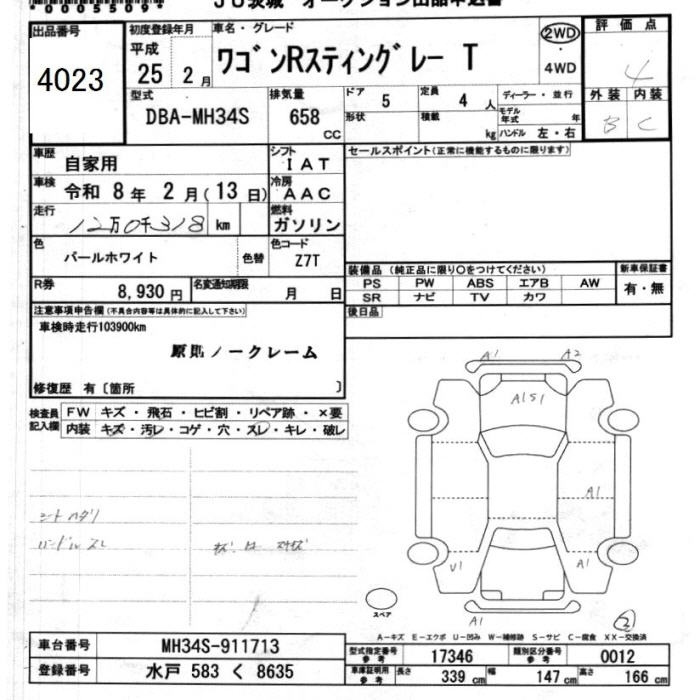 JU茨城 オークション出品申込書
*0055090*
出品番号
4023
初度登録年月
平成
25 2月
車名・グレード
ワゴンRスティングレー T
2WD
・
4WD
評価点
4
外装 内装
B C
型式
DBA-MH34S
排気量
658
CC
ドア 5
定員 4 人
ディーラー・並行
形状
積載 kg
モデル年式 年
ハンドル 左・右
車歴 自家用
シフト IAT
車検 令和 8年 2月(13日)
冷房 AAC
走行 12万0千318 km
燃料 ガソリン
色 パールホワイト 色替
色コード Z7T
R券 8,930円
名変通知期限 月 日
セールスポイント(正常に機能するものに限ります)
装備品(純正品に限り○をつけてください)
新車保証書
PS PW ABS エアB AW
有・無
SR ナビ TV カワ
後日品
注意事項申告欄(不具合内容等は具体的に記入して下さい)
車検時走行103900km
原則ノークレーム
修復歴 有〔箇所 〕
検査員記入欄
FW キズ・飛石・ヒビ割・リペア跡・×要
内装 キズ・汚レ・コゲ・穴・スレ・キレ・破レ
シートヘタリ
ハンドルスレ
A1 A2
A1S1
A1
U1 A1
A1
スペア
2
A-キズ E-エクボ U-凹み W-補修跡 S-サビ C-腐食 XX-交換済
車台番号 MH34S-911713
登録番号 水戸 583 く 8635
型式指定番号参考 17346
類別区分番号参考 0012
車庫証明用参考 長さ 339 cm 幅 147 cm 高さ 166 cm